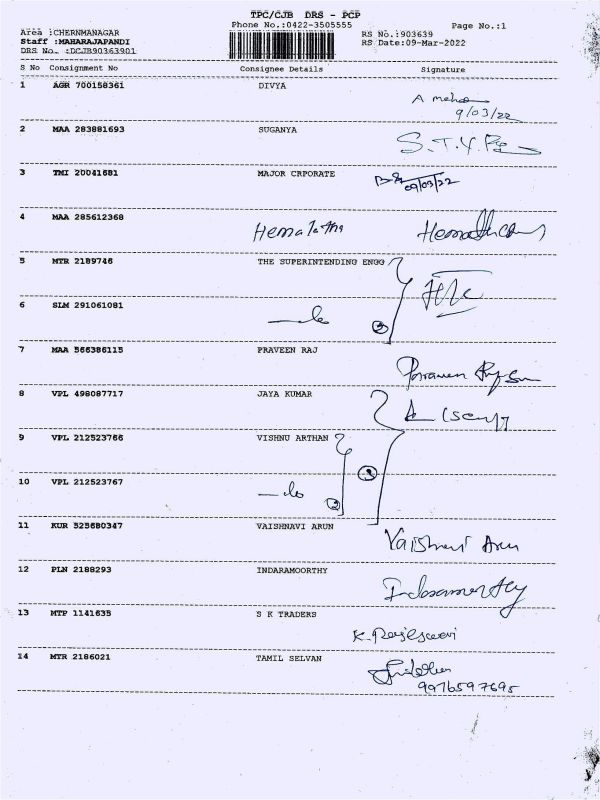 TPC/CJB DRS - PCP
Phone No.:0422-3505555 Page No.:1
Area :CHERNMANAGAR
Staff :MAHARAJAPANDI
DRS No. :DCJB90363901
RS No.:903639
RS Date:09-Mar-2022
S No Consignment No Consignee Details Signature
1 AGR 700158361 DIVYA
9/03/22
2 MAA 283881693 SUGANYA
3 TMI 20041681 MAJOR CRPORATE
09/03/22
4 MAA 285612368 Hemalatha
5 MTR 2189746 THE SUPERINTENDING ENGG
6 SLM 291061081
7 MAA 566386115 PRAVEEN RAJ
8 VPL 498087717 JAYA KUMAR
9 VPL 212523766 VISHNU ARTHAN
10 VPL 212523767
11 KUR 525680347 VAISHNAVI ARUN
Vaishnavi Arun
12 PLN 2188293 INDARAMOORTHY
13 MTP 1141635 S K TRADERS
K. Rajeswari
14 MTR 2186021 TAMIL SELVAN
9976597695